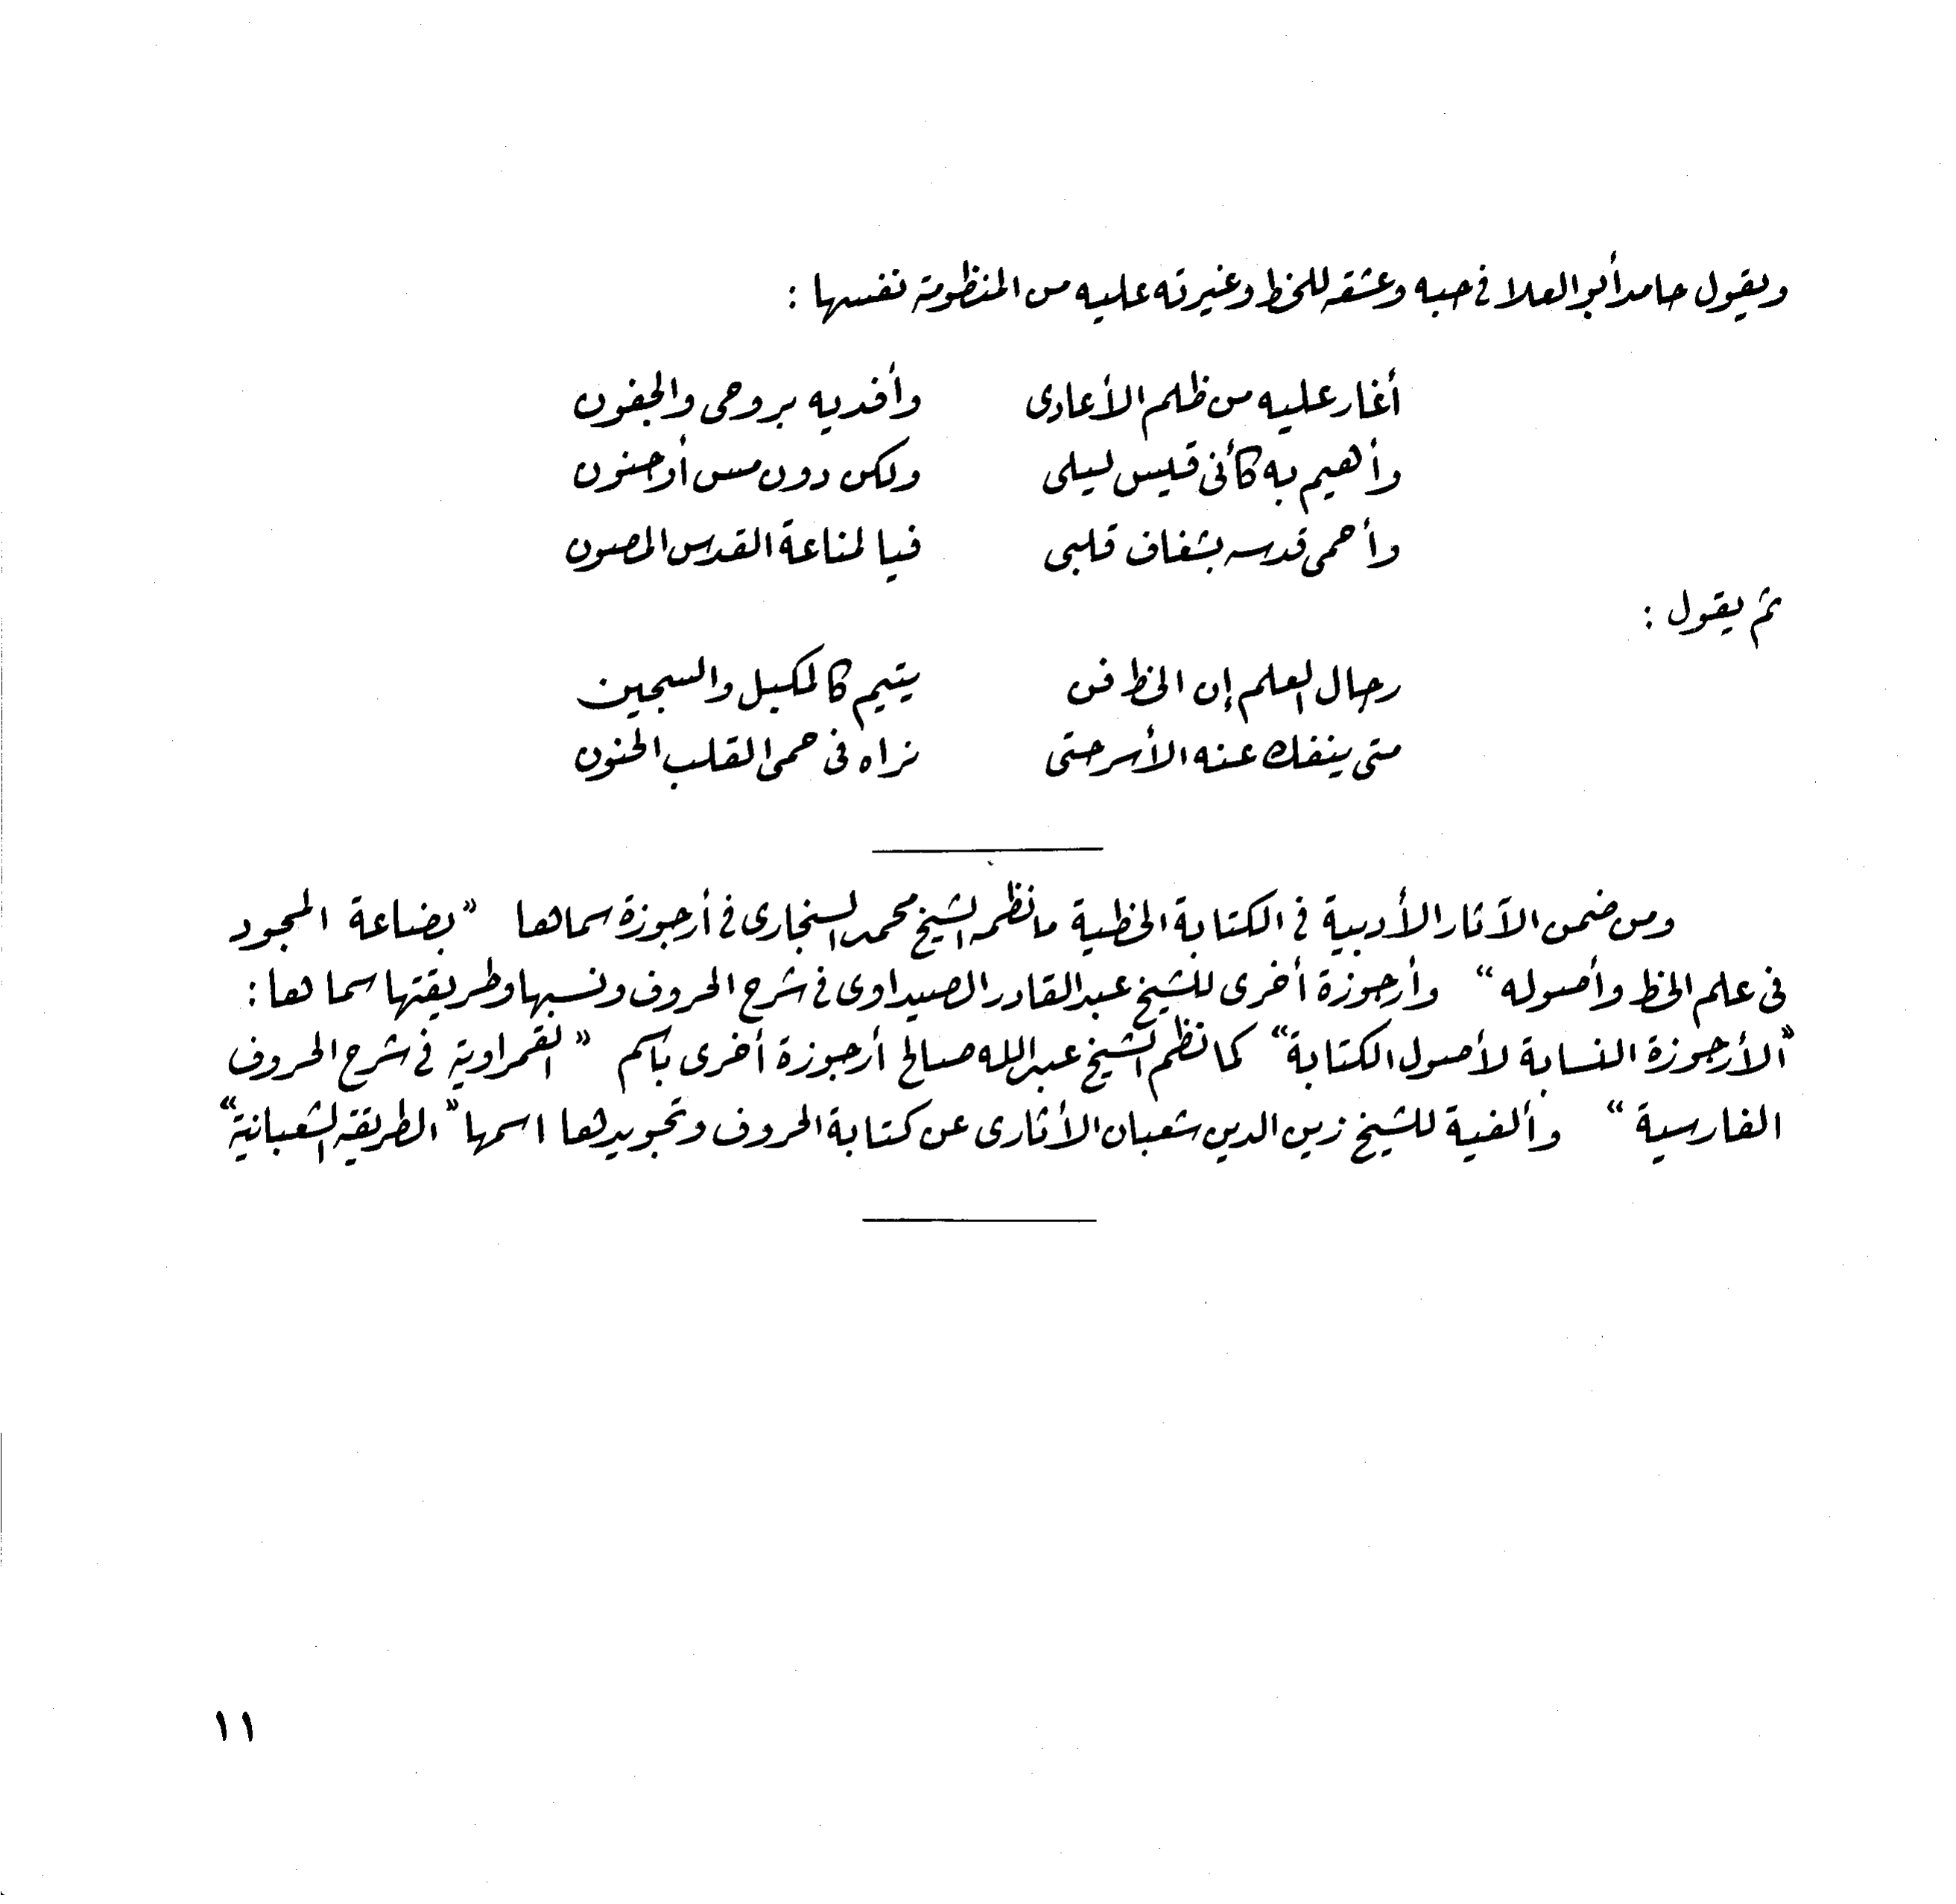 ويقول حامد أبو العلا في حبه وعشقه للخط وغيرته عليه من المنظومة نفسها :
أغار عليه من ظلم الأعادى وأفديه بروحى والجفون
وأهيم به كأنى قيس ليلى ولكن دون مس أو جنون
وأحمى قدسه بشغاف قلبى فيا لمناعة القدس المصون
ثم يقول :
رجال العلم إن الخط فن يتيم كالمكبل والسجين
متى ينفك عنه الأسر حتى نراه فى حمى القلب الحنون
ومن ضمن الآثار الأدبية في الكتابة الخطية ما نظمه الشيخ محمد السنجارى في أرجوزة سماها "بضاعة المجود
فى علم الخط وأصوله" وأرجوزة أخرى للشيخ عبد القادر الصيداوى في شرح الحروف ونسبها وطريقتها سماها :
"الأرجوزة النسابة لأصول الكتابة" كما نظم الشيخ عبد الله صالح أرجوزة أخرى باسم "القمراوية في شرح الحروف
الفارسية" وألفية للشيخ زين الدين شعبان الأثارى عن كتابة الحروف وتجويدها اسمها "الطريقة الشعبانية"
١١